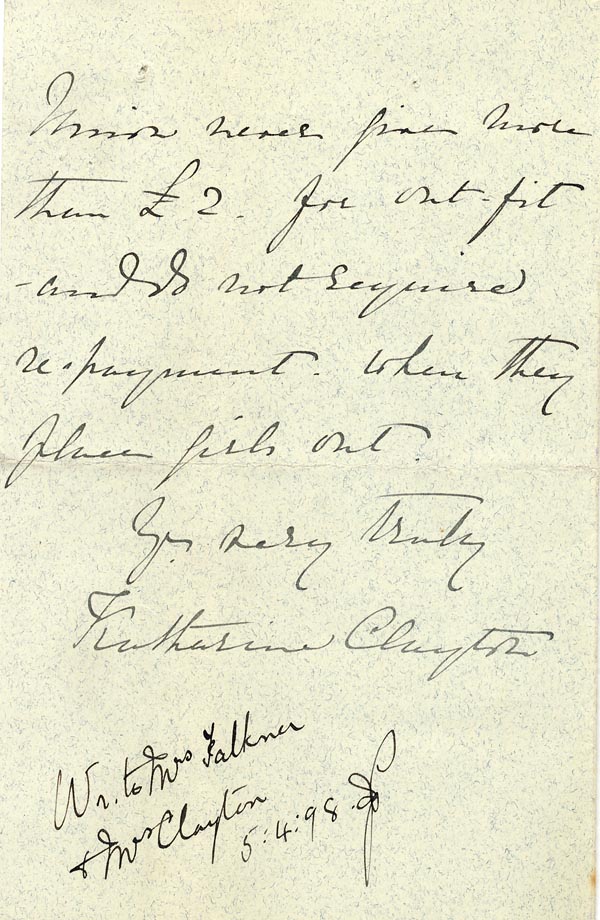 Union never gives more
than £2. for out-fit
-and do not require
re-payment. when they
place girls out.
Yrs. very truly
Katharine Clayton
Wr. to Mrs Falkner
& Mrs Clayton
5:4:98.